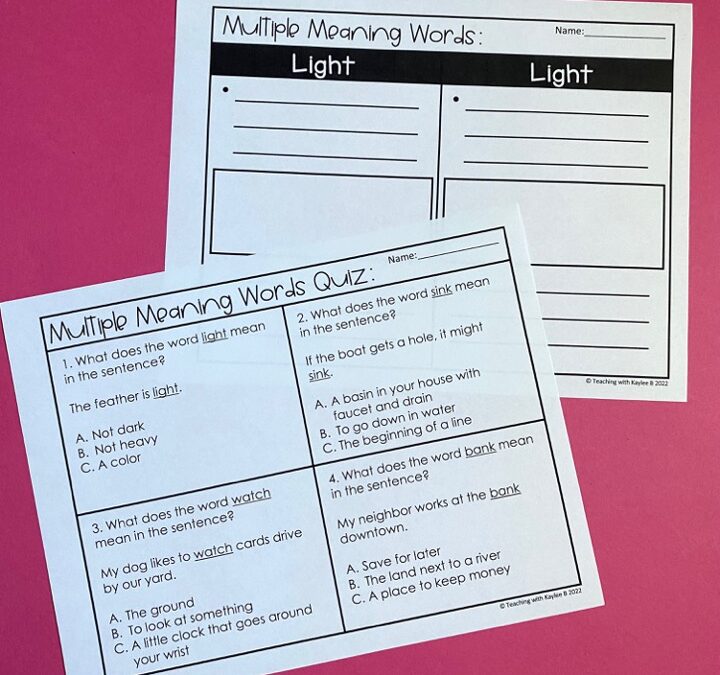 Multiple Meaning Words:
Name:
Light
Light
© Teaching with Kaylee B 2022
Multiple Meaning Words Quiz:
Name:
1. What does the word light mean
in the sentence?
The feather is light.
A. Not dark
B. Not heavy
C. A color
2. What does the word sink mean
in the sentence?
If the boat gets a hole, it might
sink.
A. A basin in your house with
faucet and drain
B. To go down in water
C. The beginning of a line
3. What does the word watch
mean in the sentence?
My dog likes to watch cards drive
by our yard.
A. The ground
B. To look at something
C. A little clock that goes around
your wrist
4. What does the word bank mean
in the sentence?
My neighbor works at the bank
downtown.
A. Save for later
B. The land next to a river
C. A place to keep money
© Teaching with Kaylee B 2022